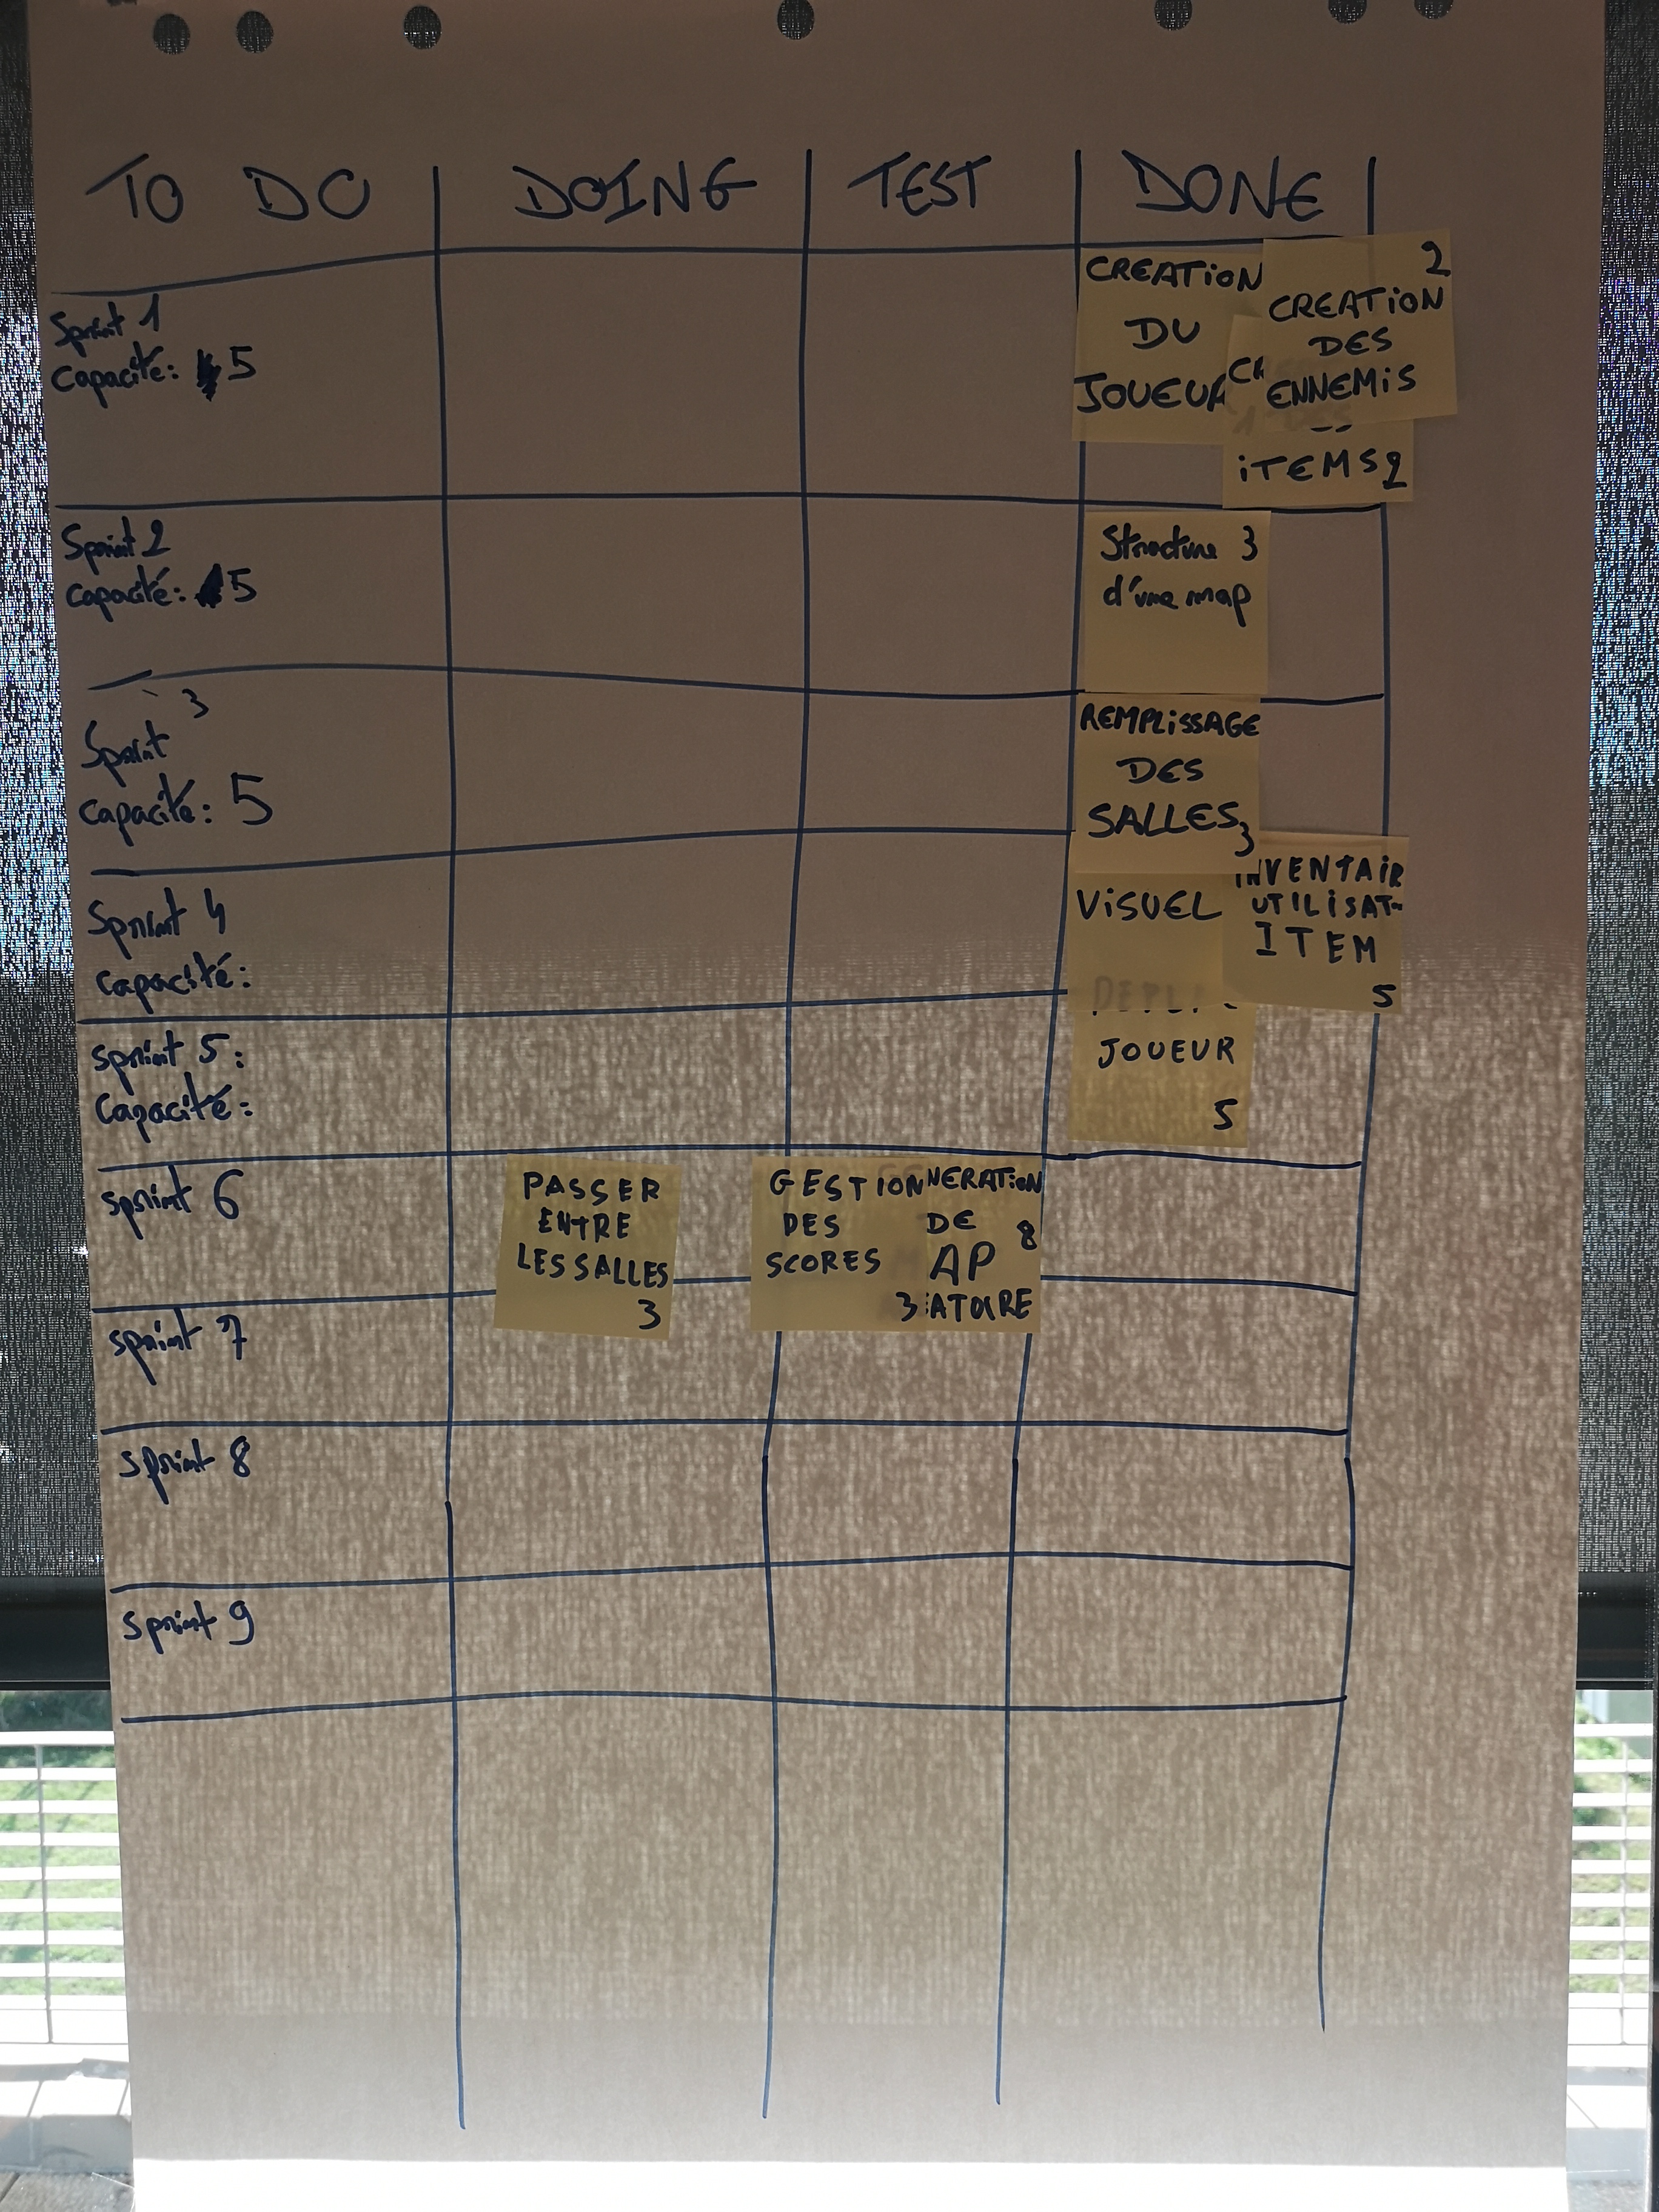 TO DO
DOING
TEST
DONE
Sprint 1
Capacité: 5
CREATION
DU
JOUEUR
2
CREATION
DES
ENNEMIS
ITEMS 2
Sprint 2
Capacité: 5
Structure 3
d'une map
3
Sprint
Capacité: 5
REMPLISSAGE
DES
SALLES 3
Sprint 4
Capacité:
VISUEL
INVENTAIR
UTILISAT-
ITEM
5
Sprint 5:
Capacité:
JOUEUR
5
sprint 6
PASSER
ENTRE
LES SALLES
3
GESTION
DES
SCORES
3
NERATION
DE 8
AP
ATOIRE
sprint 7
sprint 8
sprint 9